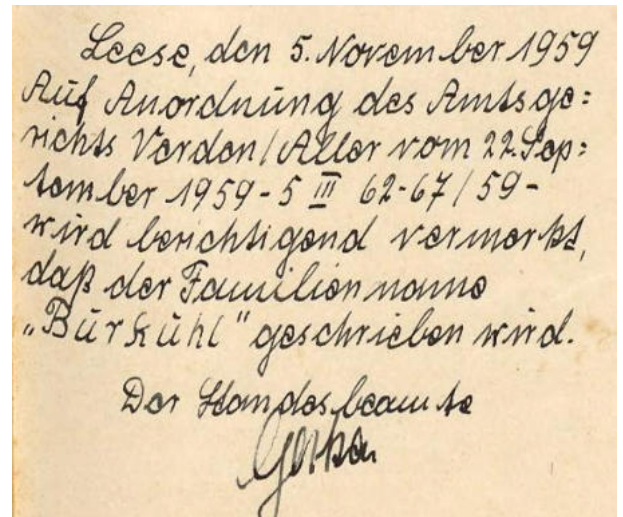 Leese, den 5. November 1959
Auf Anordnung des Amtsge=
richts Verden/Aller vom 22. Sep=
tember 1959 - 5 III 62-67/59 -
wird berichtigend vermerkt,
daß der Familienname
„Burkühl" geschrieben wird.
Der Standesbeamte